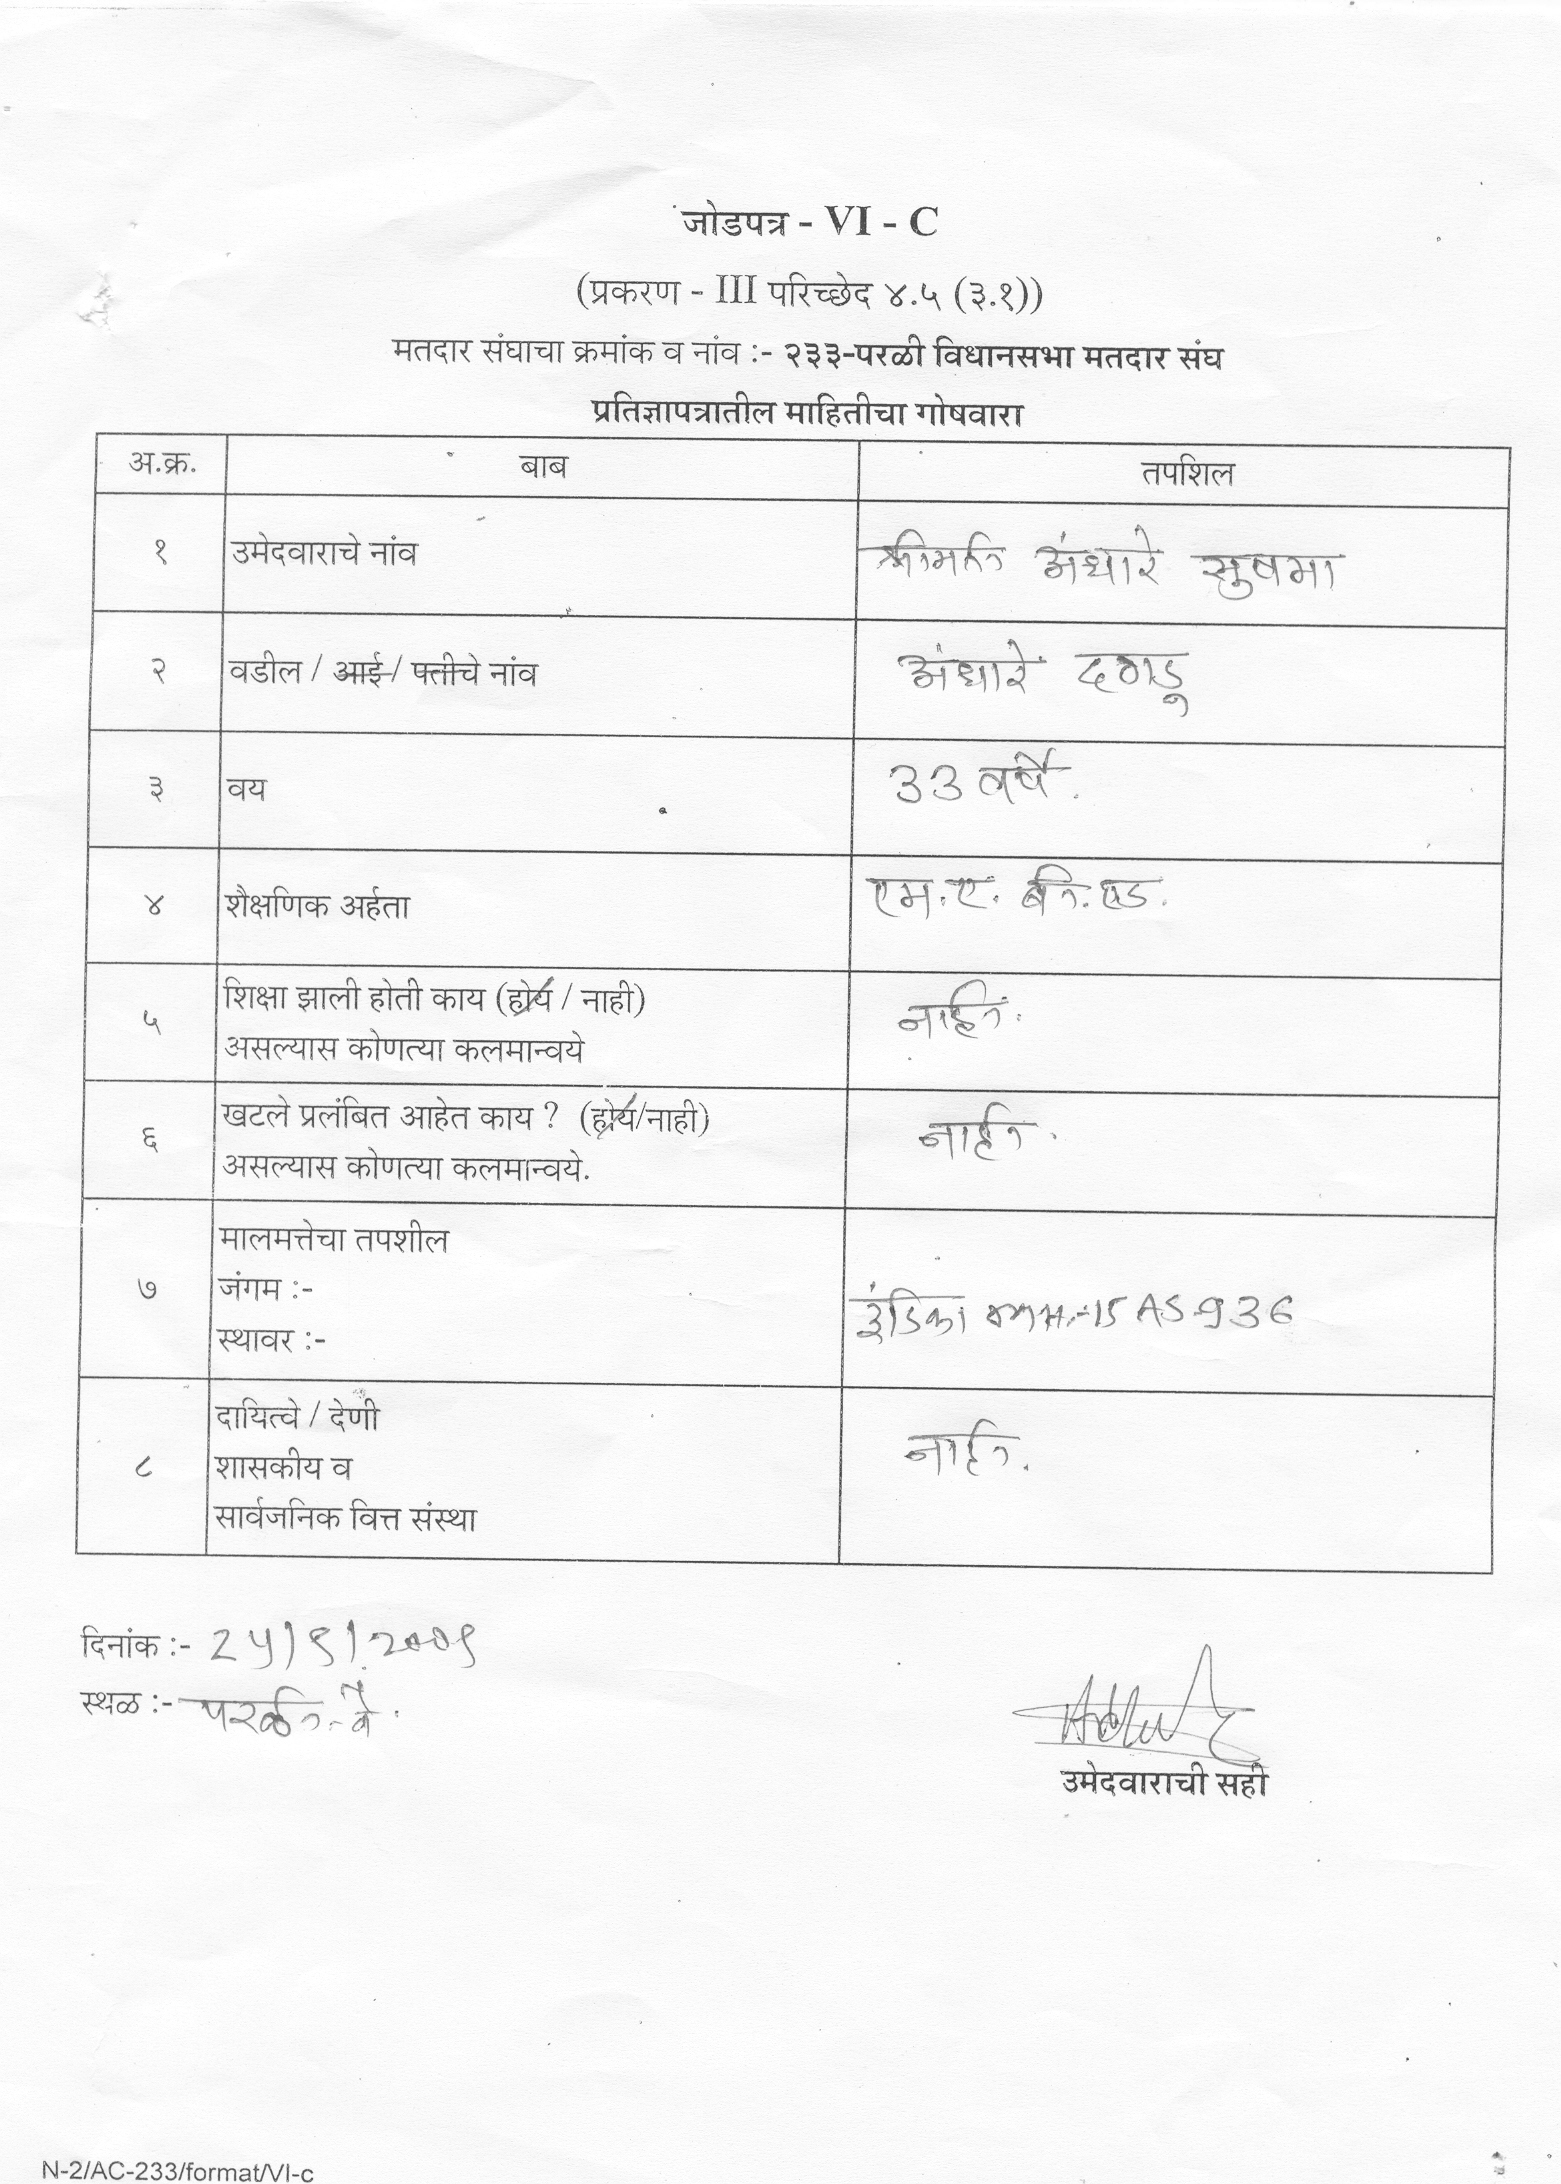 जोडपत्र - VI - C
(प्रकरण - III परिच्छेद ४.५ (३.१))
मतदार संघाचा क्रमांक व नांव :- २३३-परळी विधानसभा मतदार संघ
प्रतिज्ञापत्रातील माहितीचा गोषवारा
अ.क्र. बाब तपशिल
१ उमेदवाराचे नांव श्रीमती अंधारे सुषमा
२ वडील / आई / पतीचे नांव अंधारे दगडु
३ वय 33 वर्षे.
४ शैक्षणिक अर्हता एम.ए. बी.एड.
५ शिक्षा झाली होती काय (होय / नाही) नाही.
असल्यास कोणत्या कलमान्वये
६ खटले प्रलंबित आहेत काय ? (होय/नाही) नाही.
असल्यास कोणत्या कलमान्वये.
मालमत्तेचा तपशील
७ जंगम :- इंडिका 15 AS 936
स्थावर :-
दायित्वे / देणी नाही.
८ शासकीय व
सार्वजनिक वित्त संस्था
दिनांक :- 25/9/2009
स्थळ :- परळी-वै.
उमेदवाराची सही
N-2/AC-233/format/VI-c